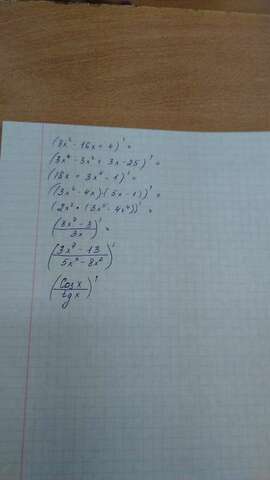 (3x² - 16x + 4)' =
(3x⁴ - 3x² + 3x - 25)' =
(15x + 3x⁴ - 1)' =
((3x² - 4x)·(5x - 1))' =
(2x² · (3x⁵ - 4x⁴))' =
((3x² - 3)/(3x))' =
((3x² - 13)/(5x⁴ - 8x²))'
(Cosx/tgx)'